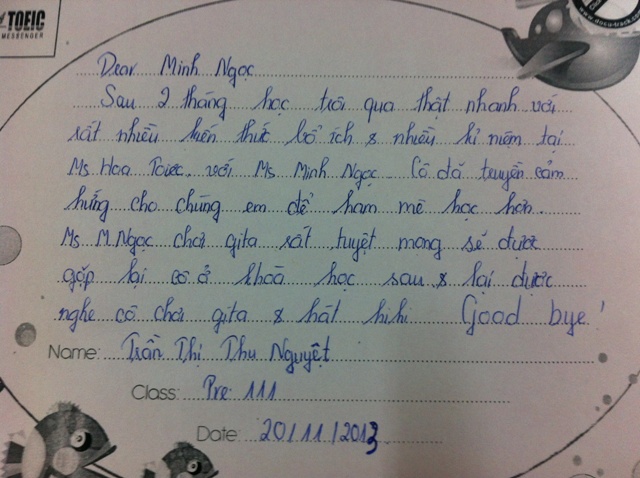 TOEIC
MESSENGER
www.doce-track.com
Dear Minh Ngọc
Sau 2 tháng học trôi qua thật nhanh với
rất nhiều kiến thức bổ ích & nhiều kỉ niệm tại
Ms Hoa Toeic. với Ms Minh Ngọc. Cô đã truyền cảm
hứng cho chúng em để ham mê học hơn.
Ms M.Ngọc chơi gita rất tuyệt mong sẽ được
gặp lại cô ở khoá học sau & lại được
nghe cô chơi gita & hát hihi Good bye!
Name: Trần Thị Thu Nguyệt
Class: Pre 111
Date: 20/11/2013